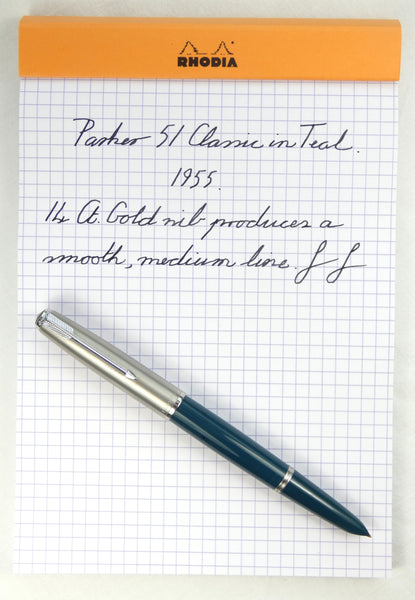 RHODIA
Parker 51 Classic in Teal.
1955.
14 ct. Gold nib produces a
smooth, medium line.